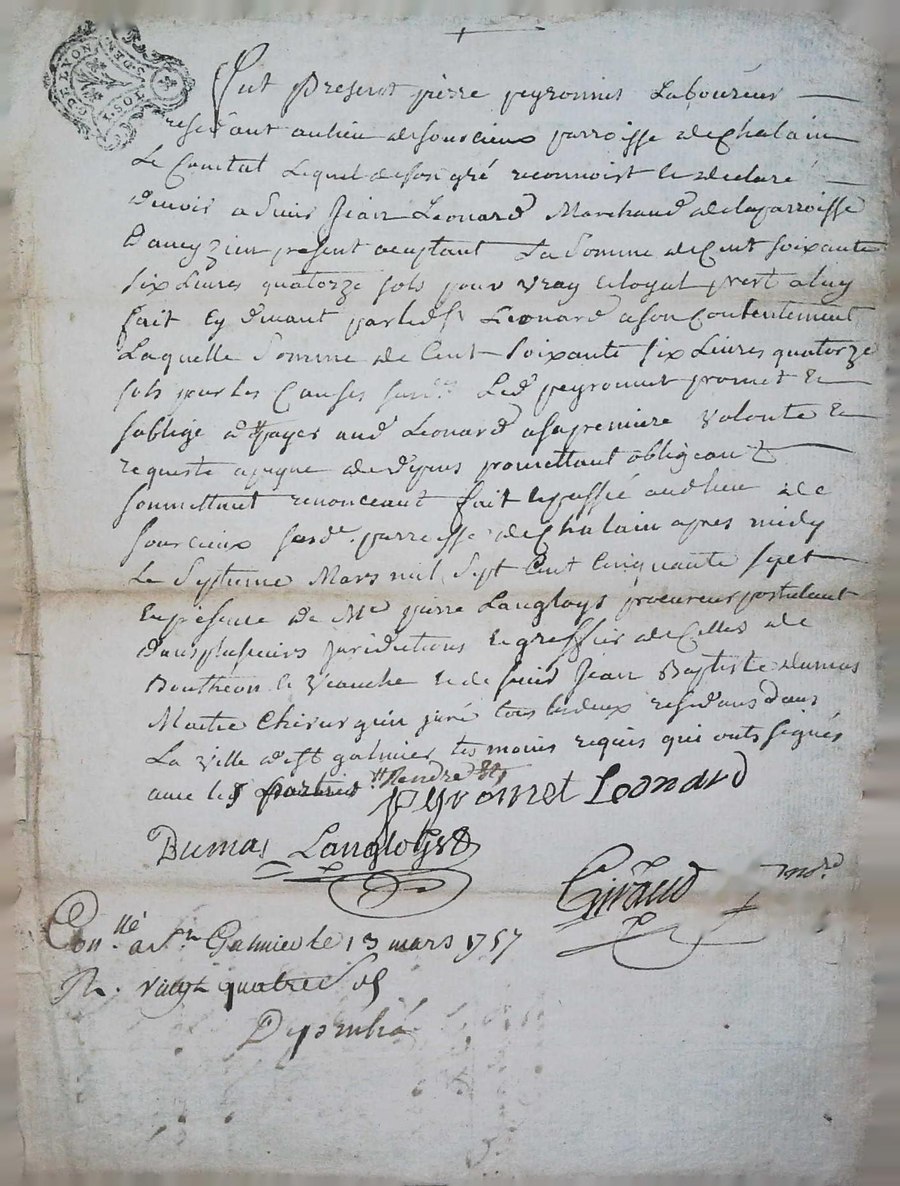 DE LYON S. DEN. 1. SOL
Fut Present pierre peyronnet Laboureur
residant au lieu de sourcieux parroisse de Chalain
Le Comtal Lequel de son gré reconnoist et declare
devoir a Sieur Jean Leonard Marchand de la parroisse
D'aveyzieu present acceptant La Somme de Cent soixante
six Livres quatorze sols pour vray et loyal prest a luy
fait Cy devant par led. Sr. Leonard a son Contentement
Laquelle Somme de Cent Soixante six Livres quatorze
sols pour les Causes susd. Led. peyronnet promet et
soblige de payer aud. Leonard a sa premiere volonté et
requeste a peyne de depens promettant obligeant
soumettant renonceant fait et passé aud lieu de
sourcieux susd. parroisse de Chalain apres midy
Le Septieme Mars mil Sept Cent Cinquante sept
En présence de Me pierre Langloys procureur postulant
dans plusieurs juridictions et greffier de Celles de
Boutheon et Veauche et de sieur Jean Baptiste dumas
Maitre Chirurgien juré tous les deux residans dans
La ville de St galmier temoins requis qui onts signés
avec les parties
Peyronnet Leonard
Dumas Langloys
Giraud nore.
Conllé a St. Galmier le 13 mars 1757
R. vingt quatre sols